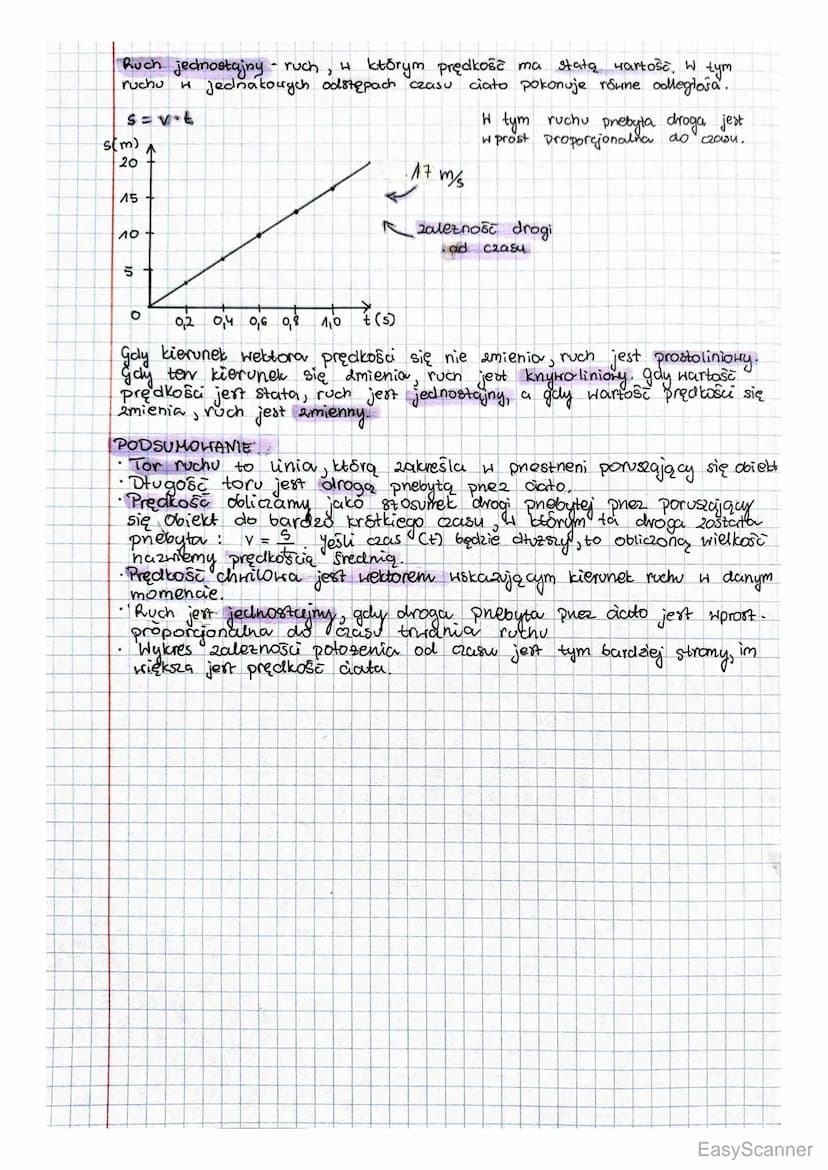 Ruch jednostajny - ruch, w którym prędkość ma stałą wartość. W tym
ruchu w jednakowych odstępach czasu ciało pokonuje równe odległości.
s = v · t
W tym ruchu przebyta droga jest
wprost proporcjonalna do czasu.
s(m)
20
15
10
5
0
0,2 0,4 0,6 0,8 1,0 t(s)
17 m/s
zależność drogi
od czasu
Gdy kierunek wektora prędkości się nie zmienia, ruch jest prostoliniowy.
Gdy ten kierunek się zmienia, ruch jest krzywoliniowy. Gdy wartość
prędkości jest stała, ruch jest jednostajny, a gdy wartość prędkości się
zmienia, ruch jest zmienny.
PODSUMOWANIE
· Tor ruchu to linia, którą zakreśla w przestrzeni poruszający się obiekt
· Długość toru jest drogą przebytą przez ciało.
· Prędkość obliczamy jako stosunek drogi przebytej przez poruszający
się obiekt do bardzo krótkiego czasu, w którym ta droga została
przebyta: v = s/t Jeśli czas (t) będzie dłuższy, to obliczoną wielkość
nazwiemy prędkością średnią.
· Prędkość chwilowa jest wektorem wskazującym kierunek ruchu w danym
momencie.
· Ruch jest jednostajny, gdy droga przebyta przez ciało jest wprost -
proporcjonalna do czasu trwania ruchu
· Wykres zależności położenia od czasu jest tym bardziej stromy, im
większa jest prędkość ciała.
EasyScanner